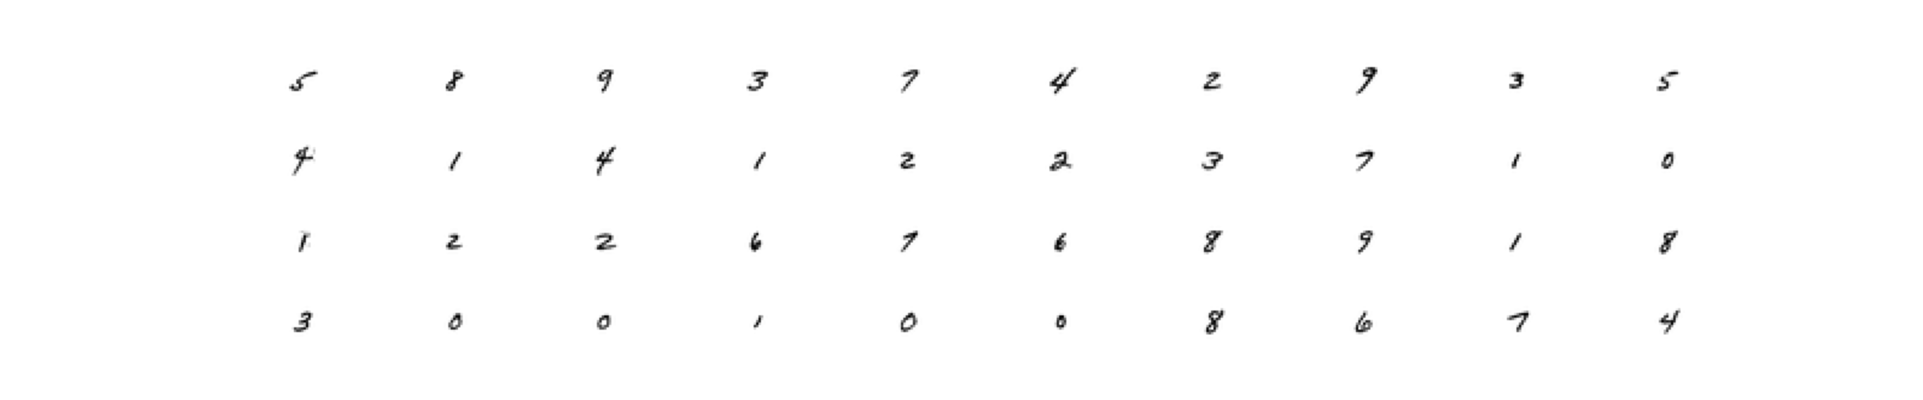 5 8 9 3 7 4 2 9 3 5
4 1 4 1 2 2 3 7 1 0
1 2 2 6 7 6 8 9 1 8
3 0 0 1 0 0 8 6 7 4